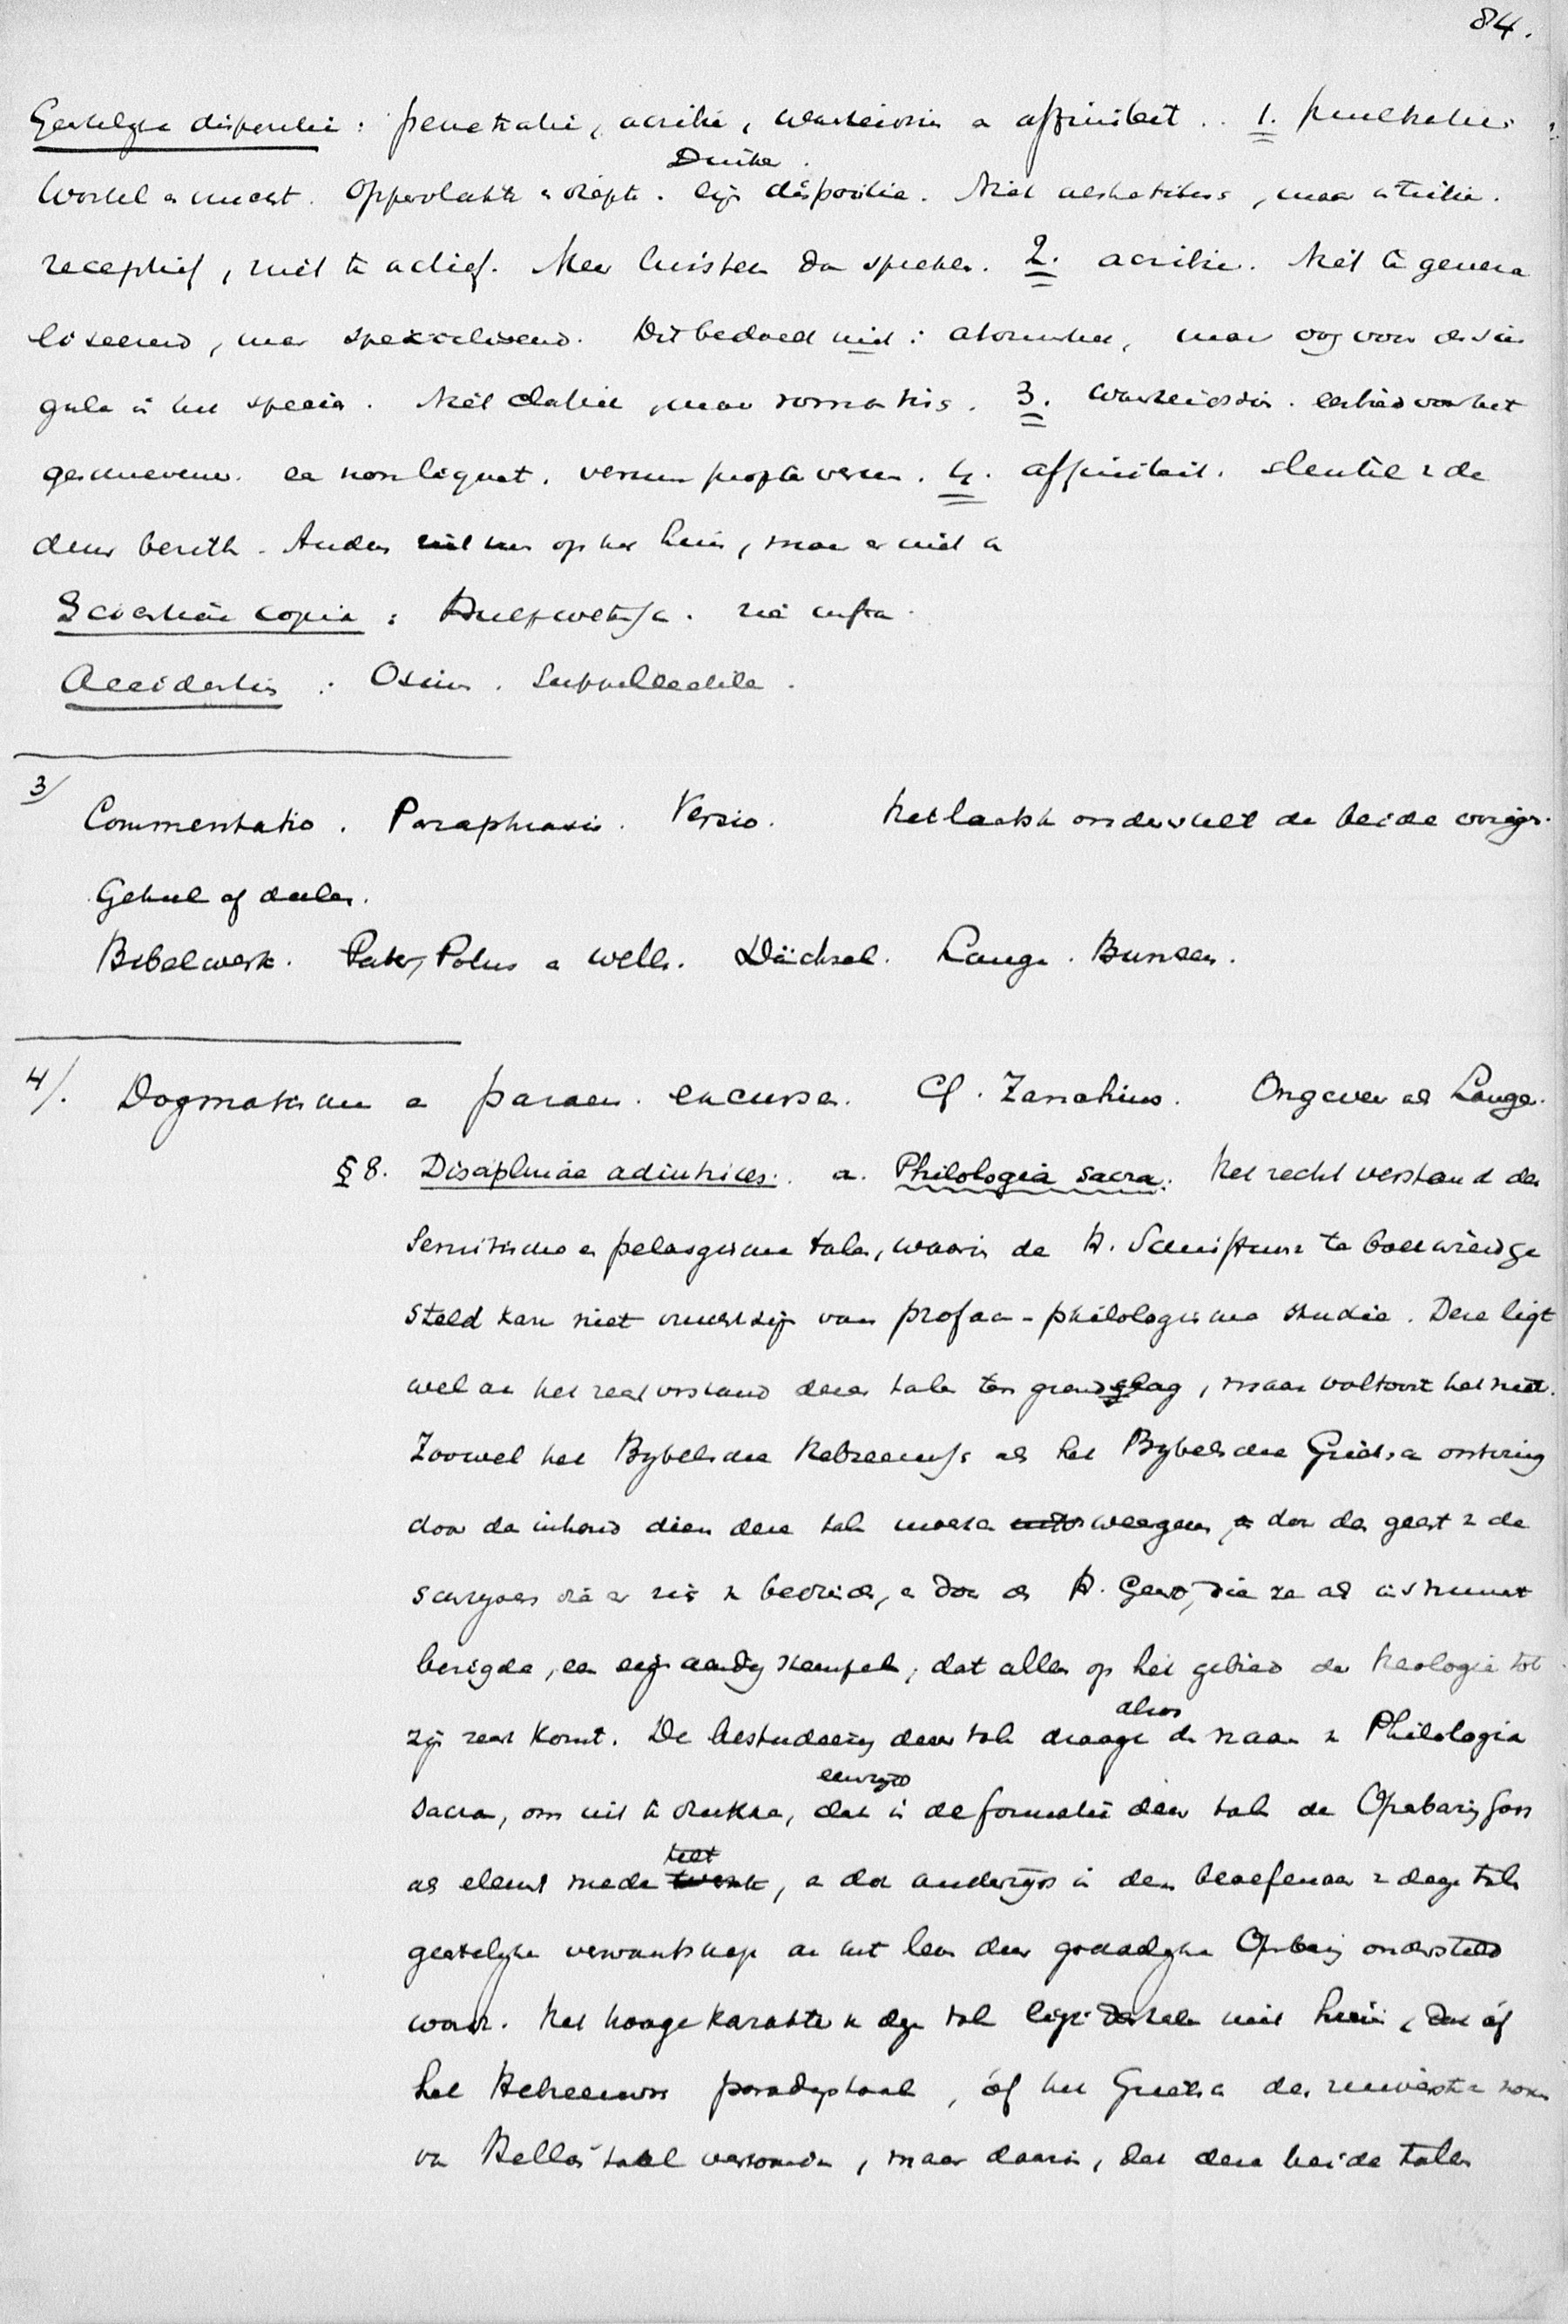 84.
Geestelyke dispositie : penetratie, acribie, waarheidszin en affiniteit . . 1. penetratie :
Wortel en vrucht. Oppervlakte en diepte. Duitse disposities. Niet aesthetisch, maar intuitie.
receptief, niet te actief. Meer luisteren dan spreken. 2. acribie. Niet te genera
liseerend, maar specialiseerend. Dit bedoelt niet : atomistisch, maar oog voor de sin
gula in hun species. Niet maar 3. waarheidszin. eerbied voor het
geschrevene. een non liquet. verum propter verum. 4. affiniteit. sleutel die
deur Anders niet op het huis, maar er niet in
Scientiae copia : Hulpwetensch. zie infra.
Accidentia : Otium. Suppellectile.
3/
Commentatio. Paraphrasis. Versio. Het laatste onderstelt de beide vorige.
Geheel of deelen.
Bibelwerk. Patr, Polus en Wells. Dächsel. Lange. Bunsen.
4/. Dogmatische en paraen. excursen. Cf. Zanchius. Ongeveer als Lange.
§ 8. Disciplinae adiutrices. a. Philologia sacra. Het recht verstand der
Semitische en pelasgische talen, waarin de H. Schrifture te boek wierd ge
steld kan niet vrucht zijn van profaan-philologische studie. Deze ligt
wel aan het recht verstand dezer talen ten grondslag, maar voltooit het niet.
Zoowel het Bybelsche Hebreeuwsch als het Bybelsche Grieksch ontving
door de inhoud dien deze taal moest weergeven, door den geest v de
schryvers die er zich v bediende, en door de H. Geest, die ze als instrument
bezigde, een eigenaardig stempel, dat alleen op het gebied der theologie tot
zijn recht komt. De bestudeering dezer taal drage alzoo de naam v Philologia
sacra, om uit te drukken, dat eenerzijds in de formatie dezer taal de Openbaring Gods
als element mede telt, en dat anderzijds in den beoefenaar v deze taal
geestelyke verwantschap aan het leven dezer genadige Openbaring ondersteld
word. Het hooge karakter v deze taal ligt derhalve niet hierin, dat óf
het Hebreeuwsch paradystaal, óf het Grieksch de zuiverste vorm
van Hellas' taal vertoonden, maar daarin, dat deze beide talen